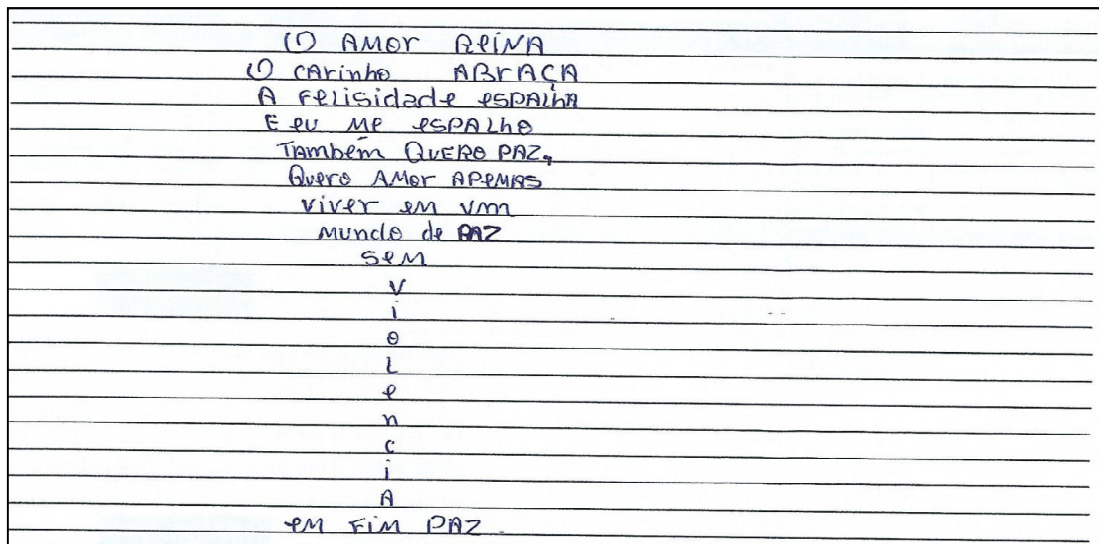 O AMOr REiNA
O cArinho ABrAÇA
A FeLisidade esPALhA
E eu Me esPALho
TAmbém QUERO PAZ,
Quero AMor APeMAS
viver em um
mundo de PAZ
Sem
V
i
o
L
e
n
c
i
A
em Fim PAZ.